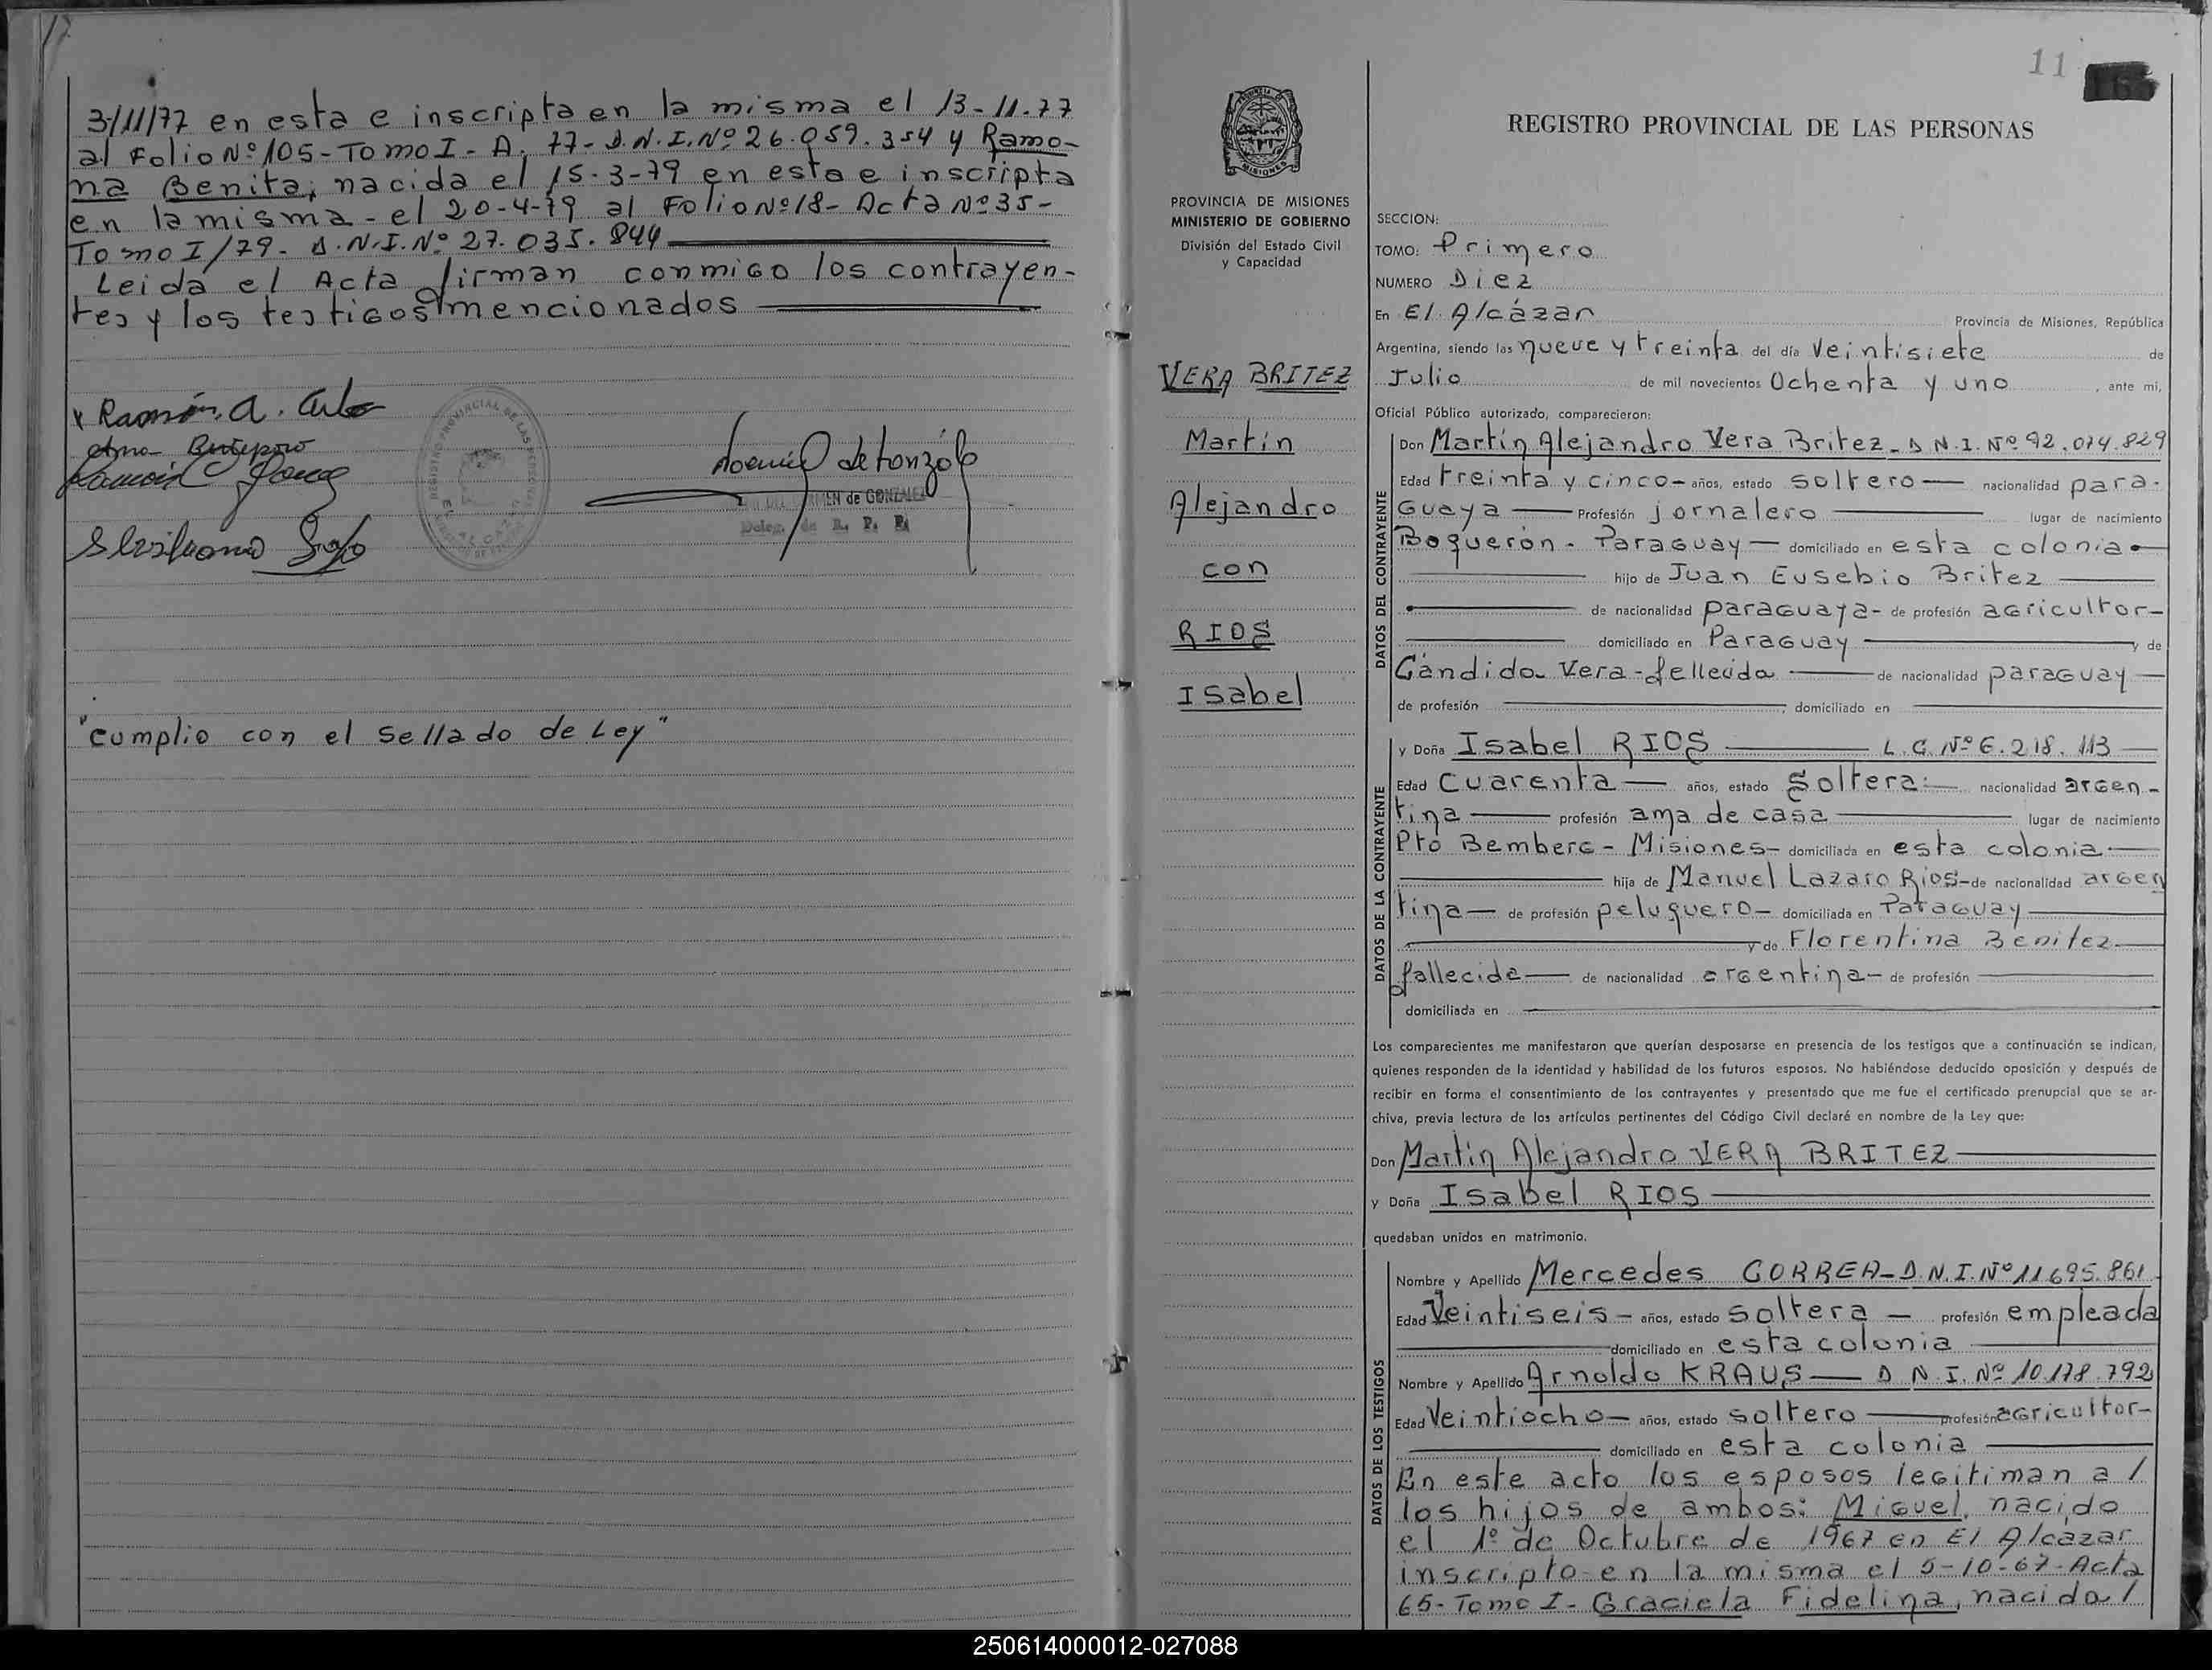 17
3/11/77 en esta e inscripta en la misma el 13-11-77
al Folio Nº 105-Tomo I- A. 77- D.N.I. Nº 26.059.354 y Ramo-
na Benita; nacida el 15-3-79 en esta e inscripta
en la misma - el 20-4-79 al Folio Nº 18- Acta Nº 35-
Tomo I/79- D.N.I. Nº 27.035.844
Leida el Acta firman conmigo los contrayen-
tes y los testigos mencionados
Ramón. A.
REGISTRO PROVINCIAL DE LAS PERSONAS
de GONZALEZ
Deleg. de R. P. P.
"cumplio con el sellado de Ley"
11
PROVINCIA DE MISIONES
MINISTERIO DE GOBIERNO
División del Estado Civil
y Capacidad
VERA BRITEZ
Martín
Alejandro
con
RIOS
Isabel
REGISTRO PROVINCIAL DE LAS PERSONAS
SECCION:
TOMO: Primero
NUMERO Diez
En El Alcázar Provincia de Misiones, República
Argentina, siendo las nueve y treinta del día veintisiete de
Julio de mil novecientos Ochenta y uno, ante mi,
Oficial Público autorizado, comparecieron:
DATOS DEL CONTRAYENTE
Don Martín Alejandro Vera Britez- D N.I. Nº 92.074.829
Edad treinta y cinco- años, estado soltero nacionalidad para-
guaya Profesión jornalero lugar de nacimiento
Boquerón- Paraguay domiciliado en esta colonia
hijo de Juan Eusebio Britez
de nacionalidad paraguaya- de profesión agricultor-
domiciliado en Paraguay y de
Cándida Vera-fellecida de nacionalidad paraguay
de profesión ; domiciliado en
DATOS DE LA CONTRAYENTE
y Doña Isabel RIOS L.C. Nº 6.218.113
Edad Cuarenta años, estado Soltera- nacionalidad argen-
tina profesión ama de casa lugar de nacimiento
Pto Bemberg- Misiones- domiciliada en esta colonia
hija de Manuel Lazaro Rios- de nacionalidad argen
tina- de profesión peluquero- domiciliada en Paraguay
y de Florentina Benitez
fallecida de nacionalidad argentina- de profesión
domiciliada en
Los comparecientes me manifestaron que querían desposarse en presencia de los testigos que a continuación se indican,
quienes responden de la identidad y habilidad de los futuros esposos. No habiéndose deducido oposición y después de
recibir en forma el consentimiento de los contrayentes y presentado que me fue el certificado prenupcial que se ar-
chiva, previa lectura de los artículos pertinentes del Código Civil declaré en nombre de la Ley que:
Don Martín Alejandro VERA BRITEZ
y Doña Isabel RIOS
quedaban unidos en matrimonio.
DATOS DE LOS TESTIGOS
Nombre y Apellido Mercedes CORREA- D.N.I. Nº 11.695.861
Edad Veintiseis- años, estado soltera- profesión empleada
domiciliado en esta colonia
Nombre y Apellido Arnoldo KRAUS D N I. Nº 10.178.792
Edad Veintiocho- años, estado soltero profesión agricultor-
domiciliado en esta colonia
En este acto los esposos legitiman a /
los hijos de ambos: Miguel, nacido
el 1º de Octubre de 1967 en El Alcázar
inscripto en la misma el 5-10-67-Acta
65-Tomo I- Graciela Fidelina, nacida /
250614000012-027088